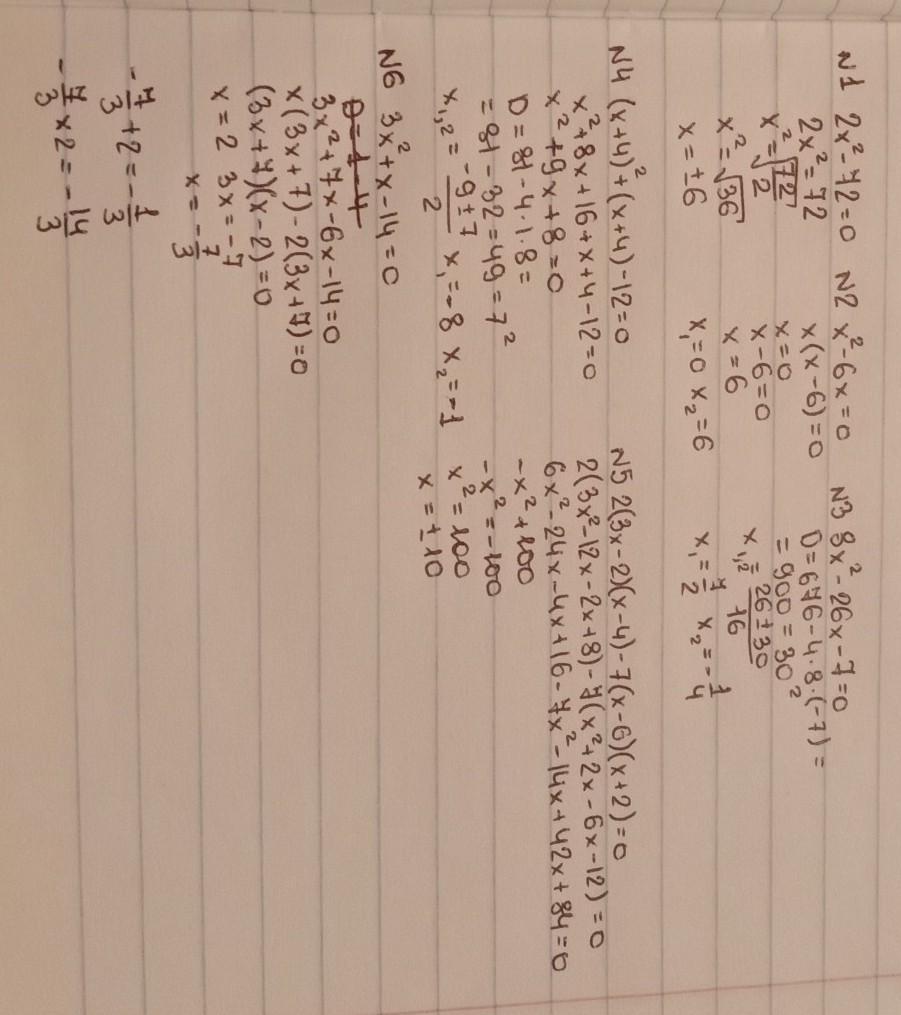 N1 2x²-72=0
2x²=72
x²=√72/2
x²=√36
x=±6
N2 x²-6x=0
x(x-6)=0
x=0
x-6=0
x=6
x₁=0 x₂=6
N3 8x²-26x-7=0
D=676-4·8·(-7)=
=900=30²
x₁,₂=26±30/16
x₁=7/2 x₂=-1/4
N4 (x+4)²+(x+4)-12=0
x²+8x+16+x+4-12=0
x²+9x+8=0
D=81-4·1·8=
=81-32=49=7²
x₁,₂=-9±7/2 x₁=-8 x₂=-1
N5 2(3x-2)(x-4)-7(x-6)(x+2)=0
2(3x²-12x-2x+8)-7(x²+2x-6x-12)=0
6x²-24x-4x+16-7x²-14x+42x+84=0
-x²+100
-x²=-100
x²=100
x=±10
N6 3x²+x-14=0
D=1-4
3x²+7x-6x-14=0
x(3x+7)-2(3x+7)=0
(3x+7)(x-2)=0
x=2 3x=-7
x=-7/3
-7/3+2=-1/3
-7/3×2=-14/3